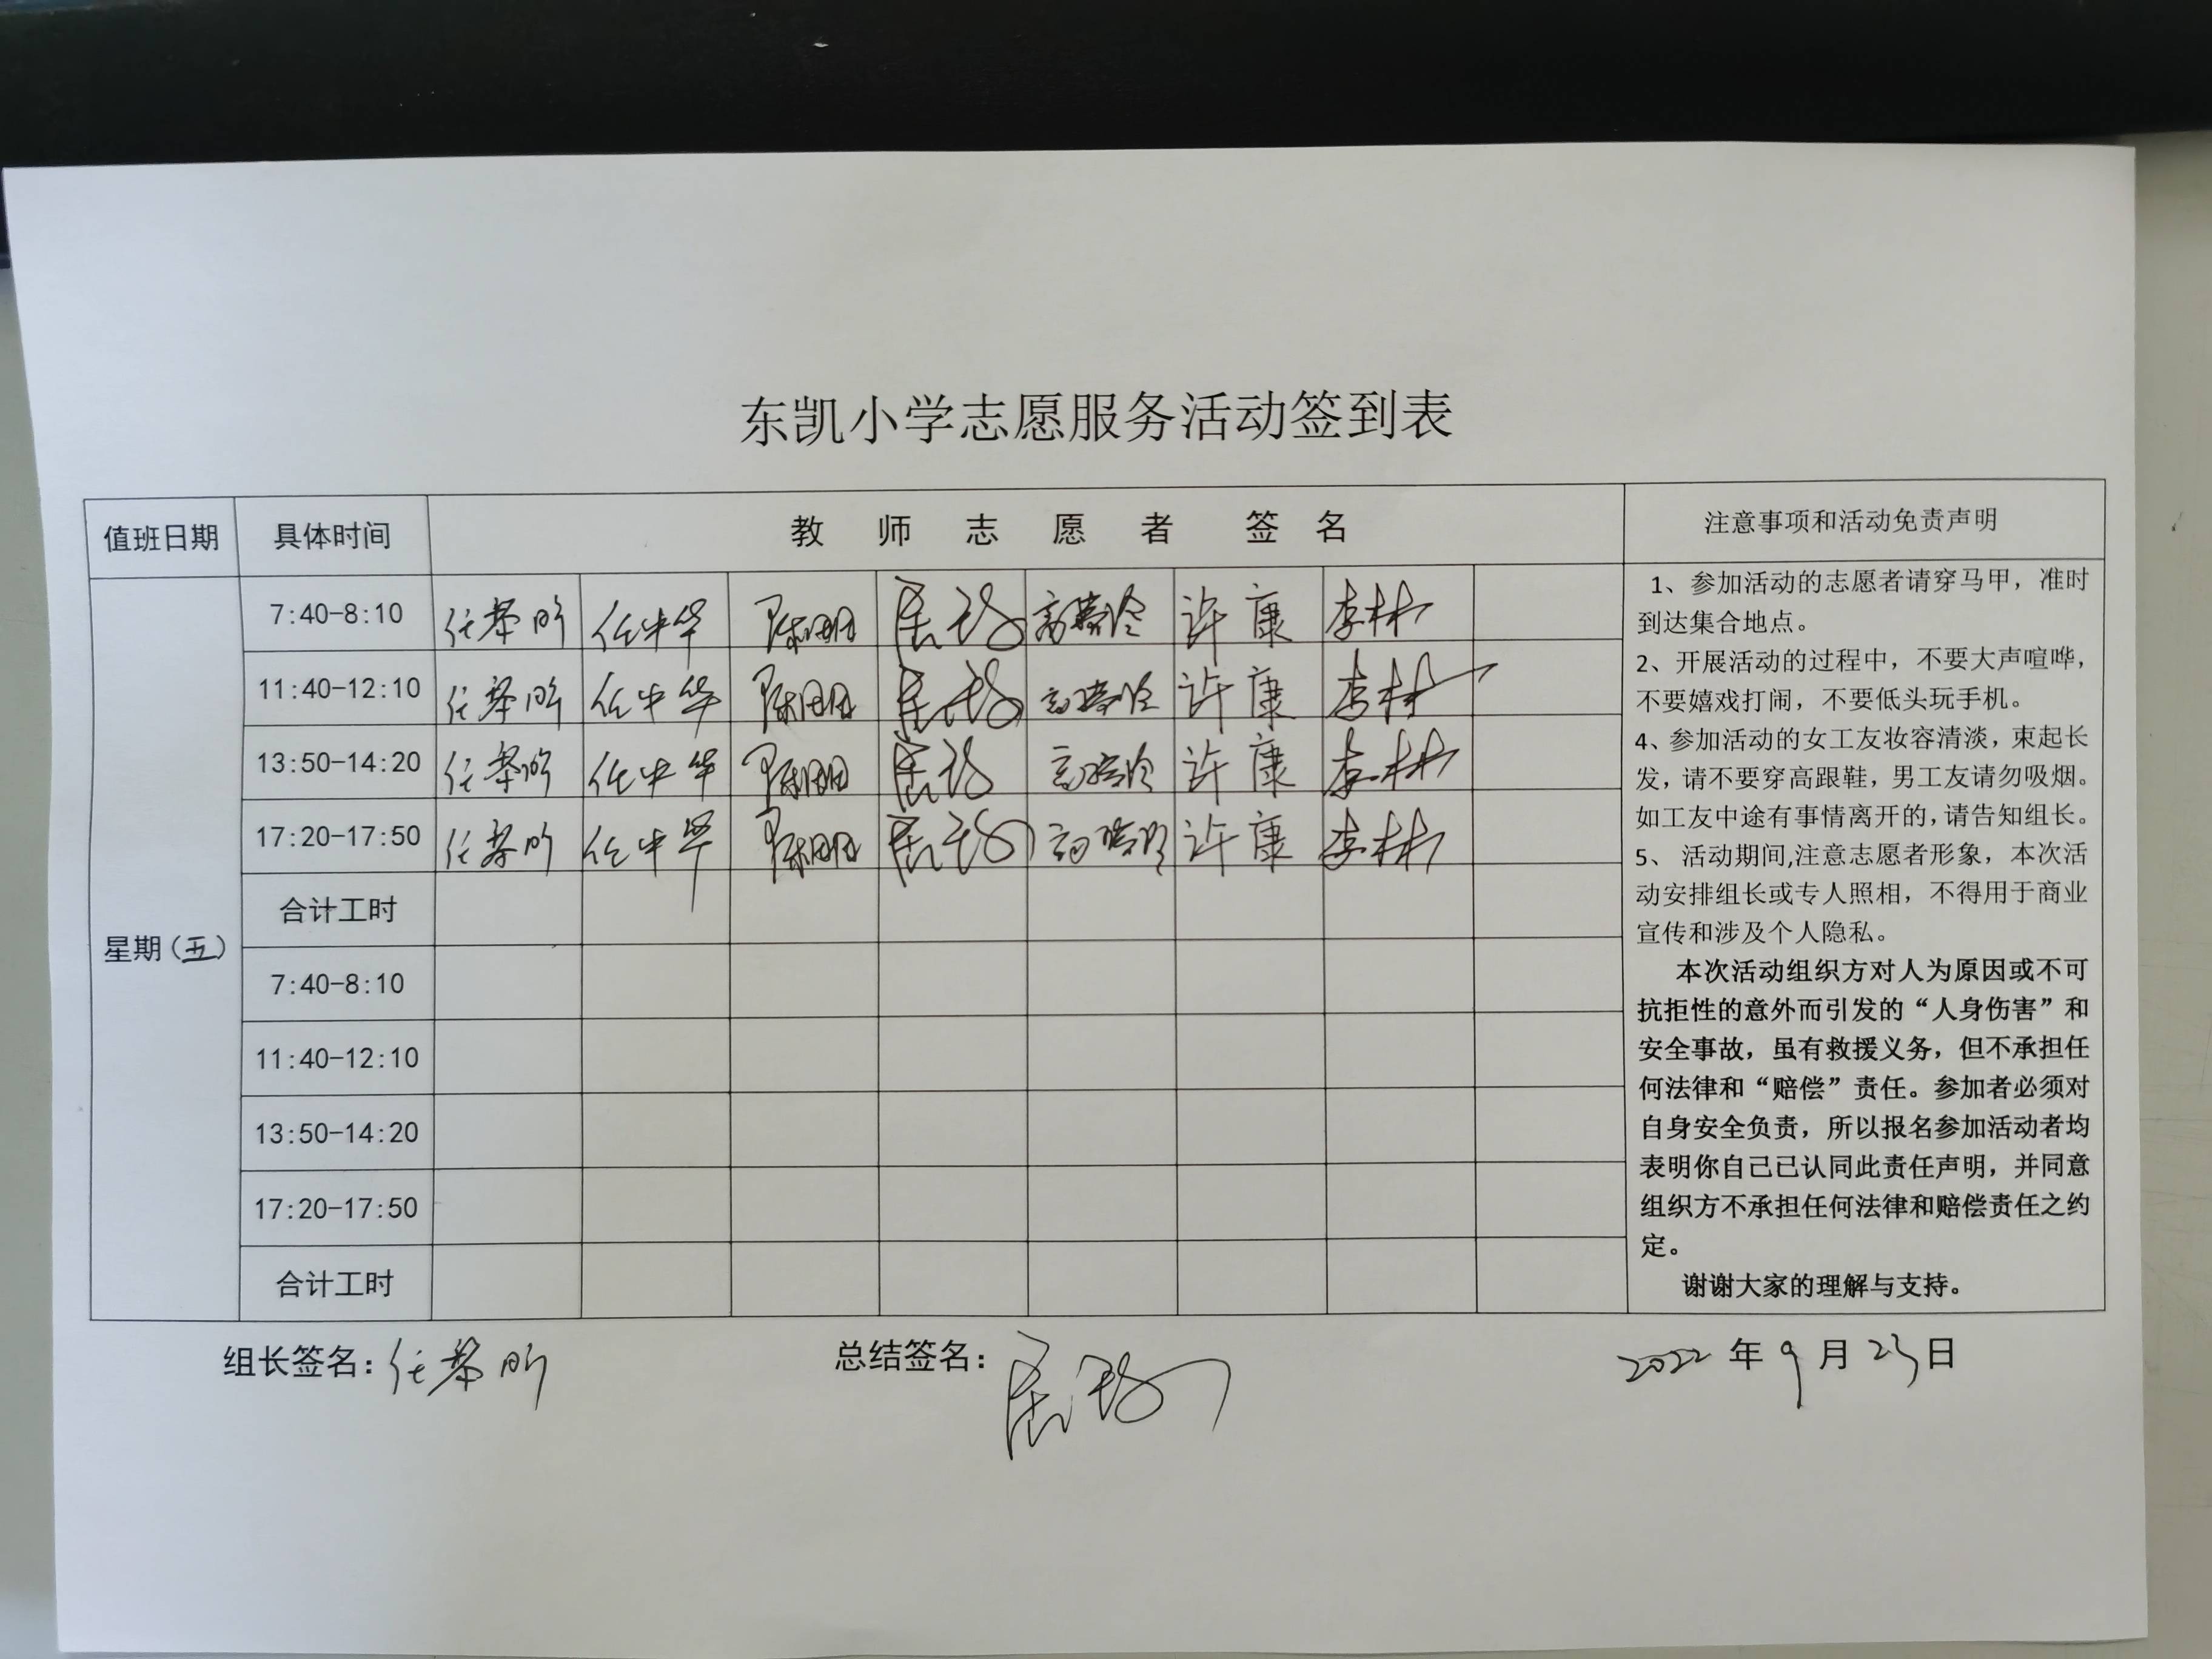 东凯小学志愿服务活动签到表
值班日期 具体时间 教师志愿者签名 注意事项和活动免责声明
星期(五)
7:40-8:10 任中华 许康 李林
11:40-12:10 任中华 许康 李林
13:50-14:20 任中华 许康 李林
17:20-17:50 任中华 许康 李林
合计工时
7:40-8:10
11:40-12:10
13:50-14:20
17:20-17:50
合计工时
1、参加活动的志愿者请穿马甲，准时
到达集合地点。
2、开展活动的过程中，不要大声喧哗，
不要嬉戏打闹，不要低头玩手机。
4、参加活动的女工友妆容清淡，束起长
发，请不要穿高跟鞋，男工友请勿吸烟。
如工友中途有事情离开的，请告知组长。
5、活动期间,注意志愿者形象，本次活
动安排组长或专人照相，不得用于商业
宣传和涉及个人隐私。
本次活动组织方对人为原因或不可
抗拒性的意外而引发的“人身伤害”和
安全事故，虽有救援义务，但不承担任
何法律和“赔偿”责任。参加者必须对
自身安全负责，所以报名参加活动者均
表明你自己已认同此责任声明，并同意
组织方不承担任何法律和赔偿责任之约
定。
谢谢大家的理解与支持。
组长签名： 总结签名： 2022年9月23日